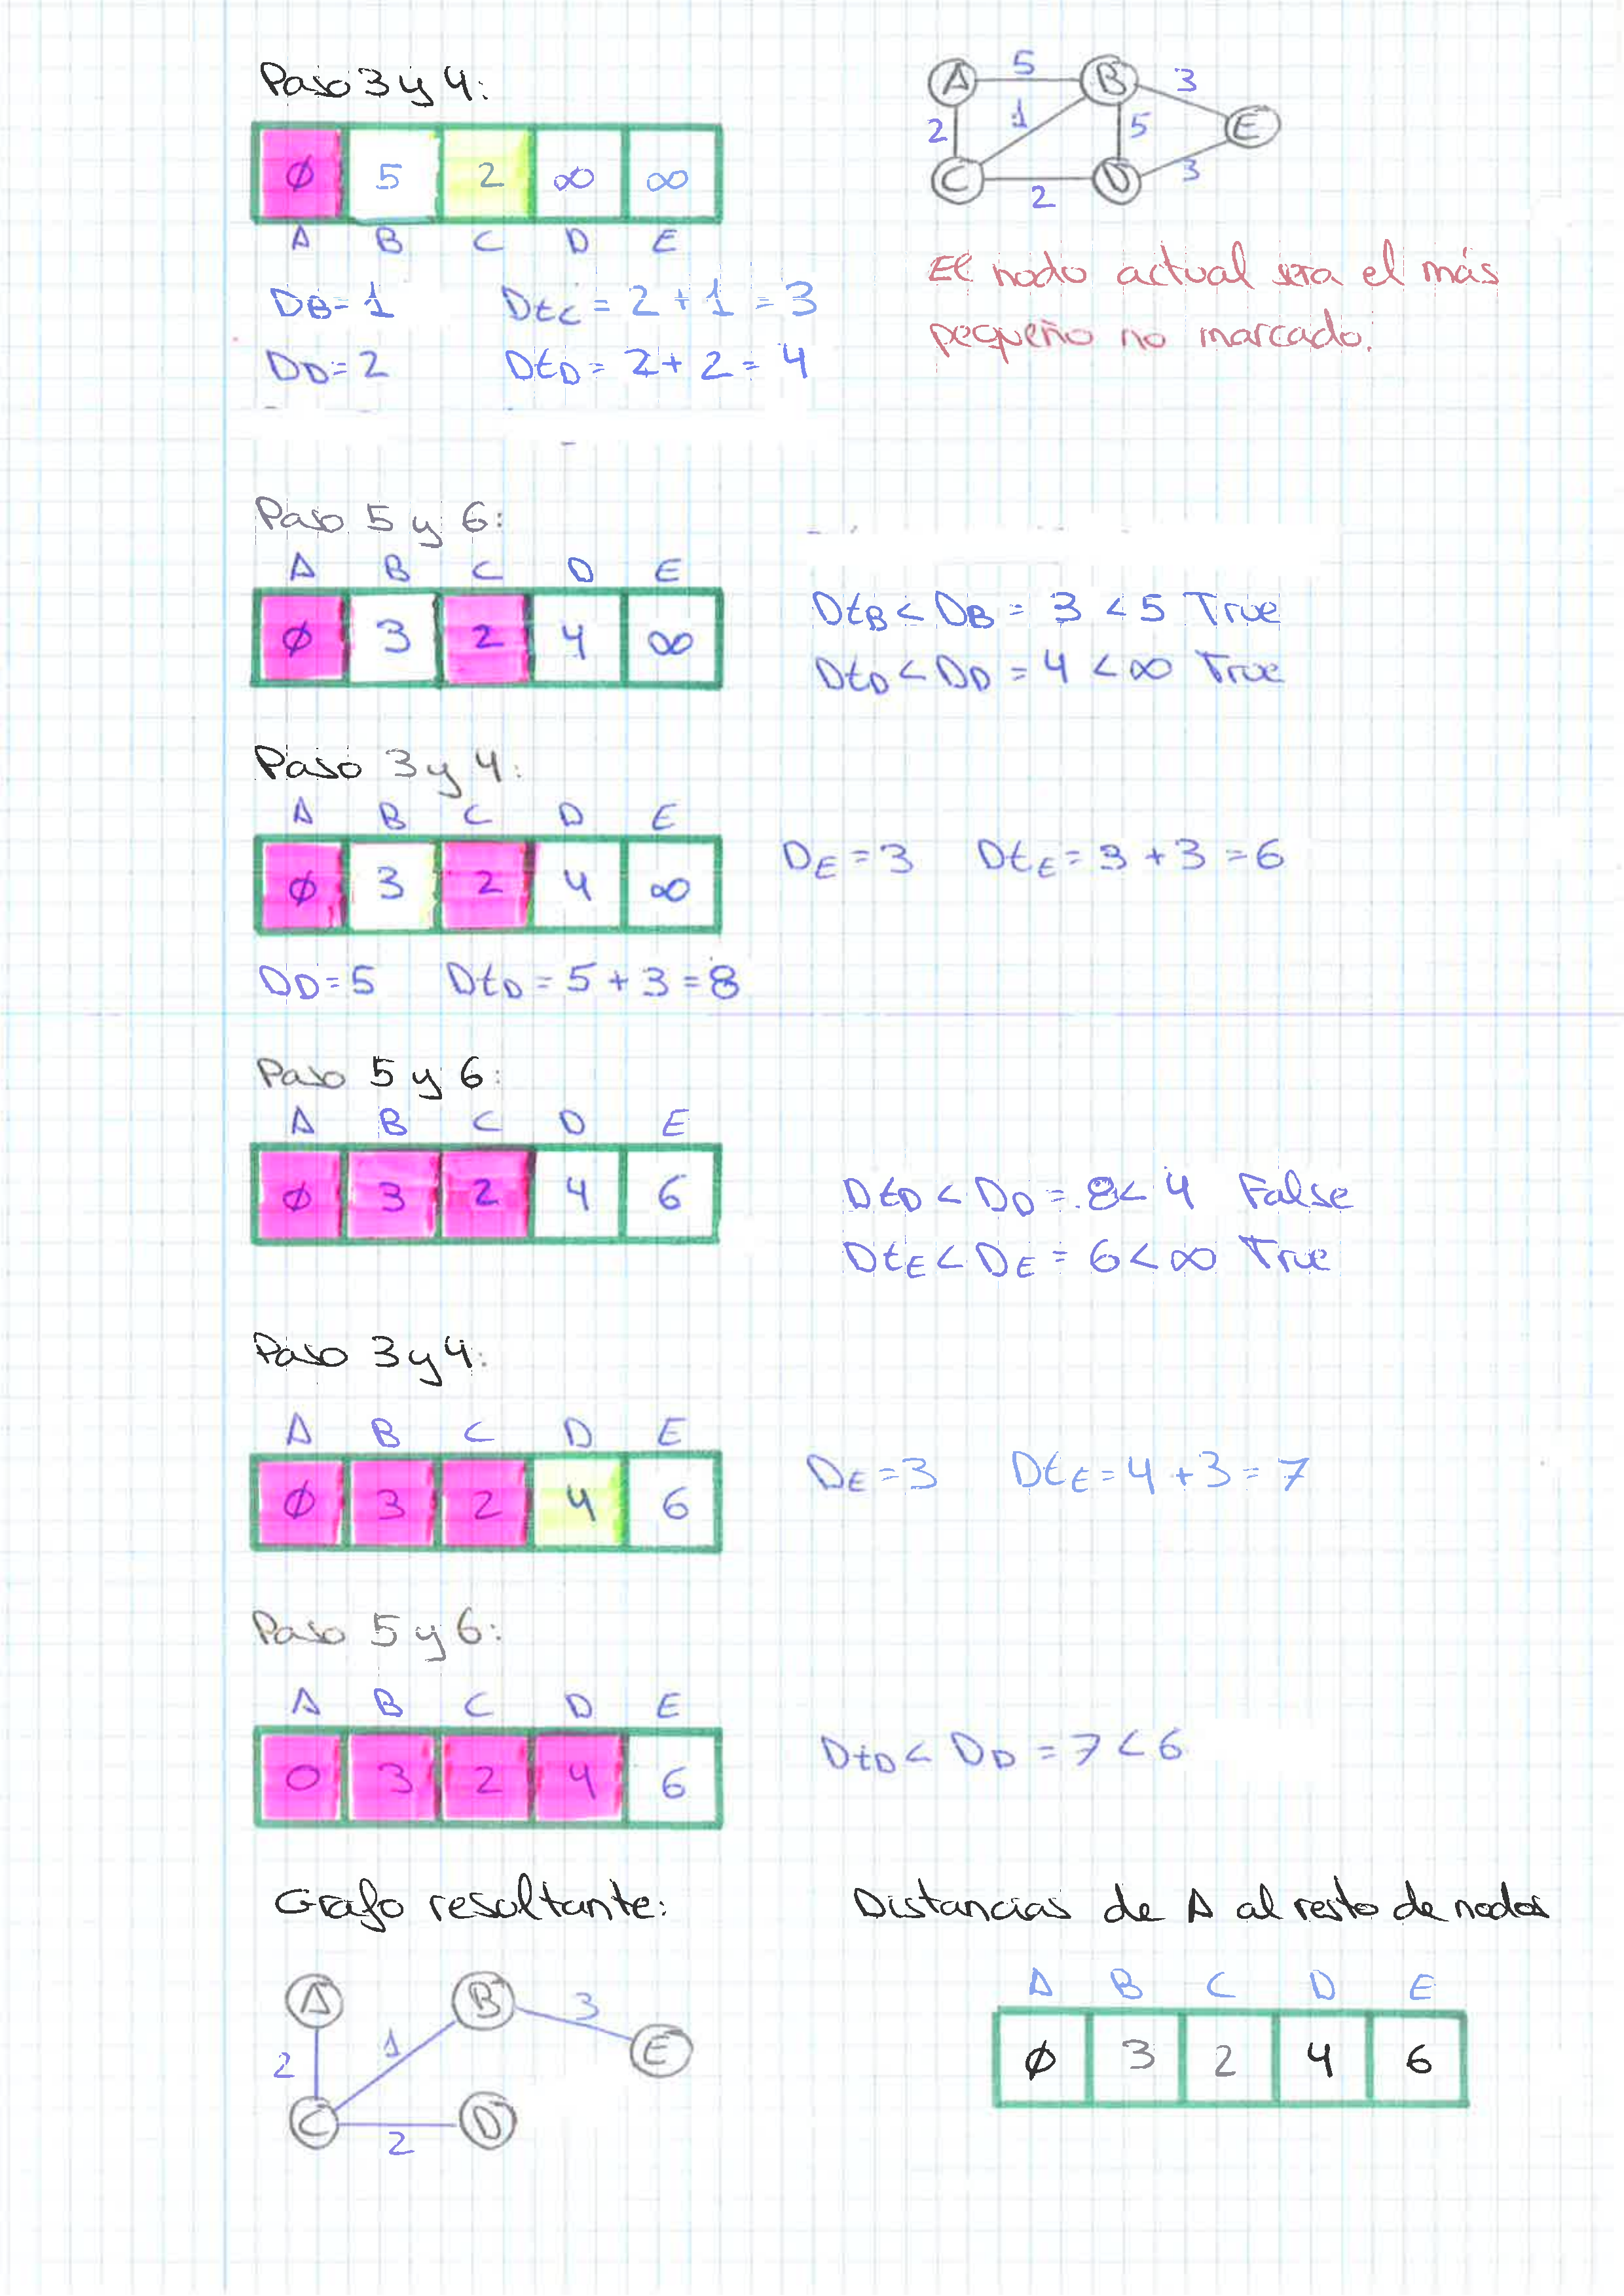 Paso 3 y 4:
A 5 B 3
2 1 5 E
C 2 D 3
Ø 5 2 ∞ ∞
A B C D E
DB=1 DtC = 2 + 1 = 3
DD=2 DtD = 2 + 2 = 4
El nodo actual sera el más
pequeño no marcado.
Paso 5 y 6:
A B C D E
Ø 3 2 4 ∞
DtB < DB = 3 < 5 True
DtD < DD = 4 < ∞ True
Paso 3 y 4:
A B C D E
Ø 3 2 4 ∞
DE = 3 DtE = 3 + 3 = 6
DD=5 DtD = 5 + 3 = 8
Paso 5 y 6:
A B C D E
Ø 3 2 4 6
DtD < DD = 8 < 4 False
DtE < DE = 6 < ∞ True
Paso 3 y 4:
A B C D E
Ø 3 2 4 6
DE = 3 DtE = 4 + 3 = 7
Paso 5 y 6:
A B C D E
0 3 2 4 6
DtD < DD = 7 < 6
Grafo resultante:
A B 3
2 1 E
C 2 D
Distancias de A al resto de nodos
A B C D E
Ø 3 2 4 6